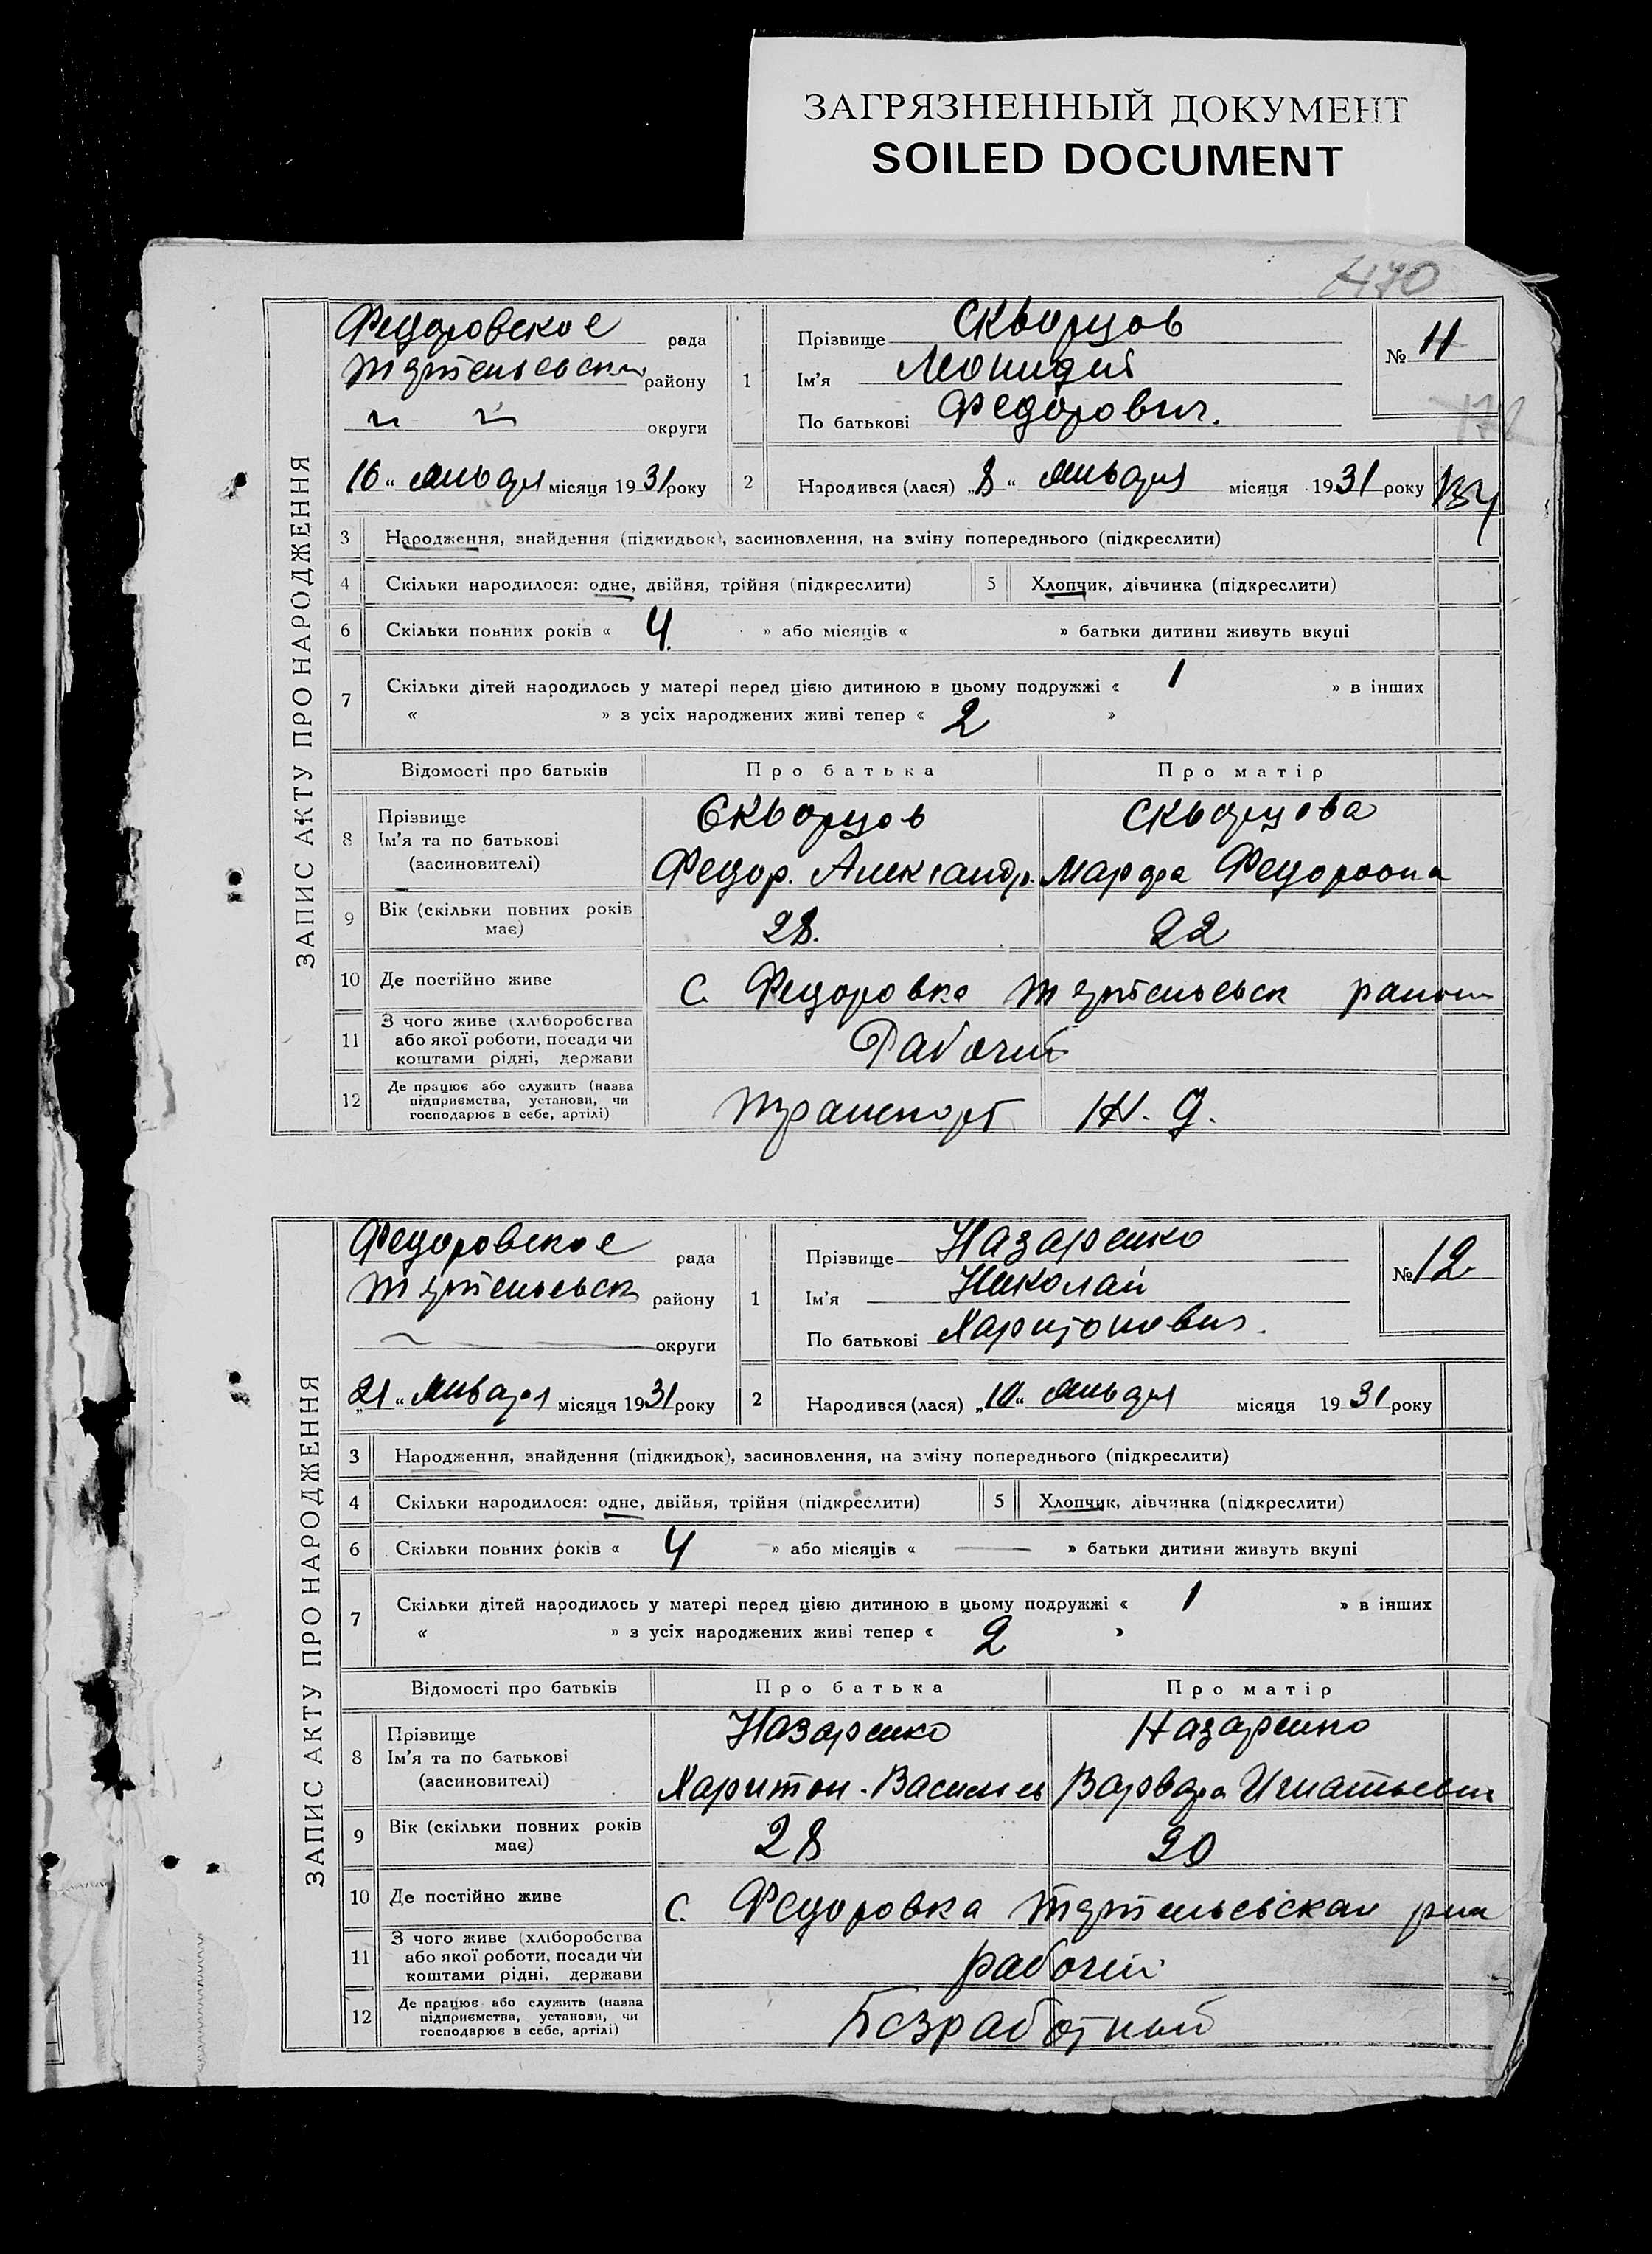 ЗАГРЯЗНЕННЫЙ ДОКУМЕНТ
SOILED DOCUMENT
ЗАПИС АКТУ ПРО НАРОДЖЕННЯ
Федоровское рада
району
округи
1
Прізвище Скворцов
Ім'я Леонидий
По батькові Федорович.
№ 11
16 „ Января місяця 1931 року
2
Народився (лася) „8“ января місяця 1931 року
184
3 Народження, знайдення (підкидьок), засиновлення, на зміну попереднього (підкреслити)
4 Скільки народилося: одне, двійня, трійня (підкреслити) 5 Хлопчик, дівчинка (підкреслити)
6 Скільки повних років « 4. » або місяців « » батьки дитини живуть вкупі
7 Скільки дітей народилось у матері перед цією дитиною в цьому подружжі « 1 » в інших
« » з усіх народжених живі тепер « 2 »
Відомості про батьків Про батька Про матір
8 Прізвище
Ім'я та по батькові
(засиновителі)
Скворцов Скворцова
Федор. Александр. Марфа Федоровна
9 Вік (скільки повних років має) 28. 22
10 Де постійно живе с. Федоровка район
11 З чого живе (хліборобства або якої роботи, посади чи коштами рідні, держави Рабочий
12 Де працює або служить (назва підприємства, установи, чи господарює в себе, артілі) Транспорт Ж. д.
ЗАПИС АКТУ ПРО НАРОДЖЕННЯ
Федоровское рада
району
округи
1
Прізвище Назаренко
Ім'я Николай
По батькові Харитонович.
№ 12.
„21“ Января місяця 1931 року
2
Народився (лася) „10“ января місяця 1931 року
3 Народження, знайдення (підкидьок), засиновлення, на зміну попереднього (підкреслити)
4 Скільки народилося: одне, двійня, трійня (підкреслити) 5 Хлопчик, дівчинка (підкреслити)
6 Скільки повних років « 4 » або місяців « — » батьки дитини живуть вкупі
7 Скільки дітей народилось у матері перед цією дитиною в цьому подружжі « 1 » в інших
« » з усіх народжених живі тепер « 2 »
Відомості про батьків Про батька Про матір
8 Прізвище
Ім'я та по батькові
(засиновителі)
Назаренко Назаренко
Харитон. Васильев Варвара Игнатьевн
9 Вік (скільки повних років має) 28 20
10 Де постійно живе с. Федоровка
11 З чого живе (хліборобства або якої роботи, посади чи коштами рідні, держави рабочий
12 Де працює або служить (назва підприємства, установи, чи господарює в себе, артілі) Безработный